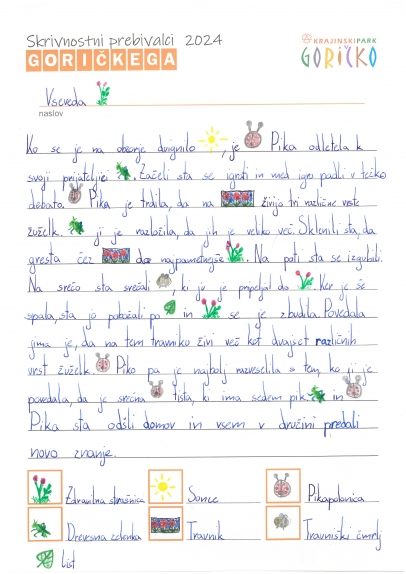 Skrivnostni prebivalci 2024
GORIČKEGA
KRAJINSKI PARK
GORIČKO
Vseveda
naslov
Ko se je na obzorje dvignilo , je Pika odletela k
svoji prijateljici . Začeli sta se igrati in med igro padli v težko
debato. Pika je trdila, da na živijo tri različne vrste
žuželk. ji je razložila, da jih je veliko več. Sklenili sta, da
gresta čez do najpametnejše . Na poti sta se izgubili.
Na srečo sta srečali , ki ji je pripeljal do . Ker je še
spala, sta jo pobožali po in se je zbudila. Povedala
jima je, da na tem travniku živi več kot dvajset različnih
vrst žuželk. Piko pa je najbolj razveselila s tem, ko ji je
povedala, da je srečna tista, ki ima sedem pik. in
Pika sta odšli domov in vsem v družini predali
novo znanje.
Zdravilna strašnica Sonce Pikapolonica
Drevesna zelenka Travnik Travniški čmrlj
list